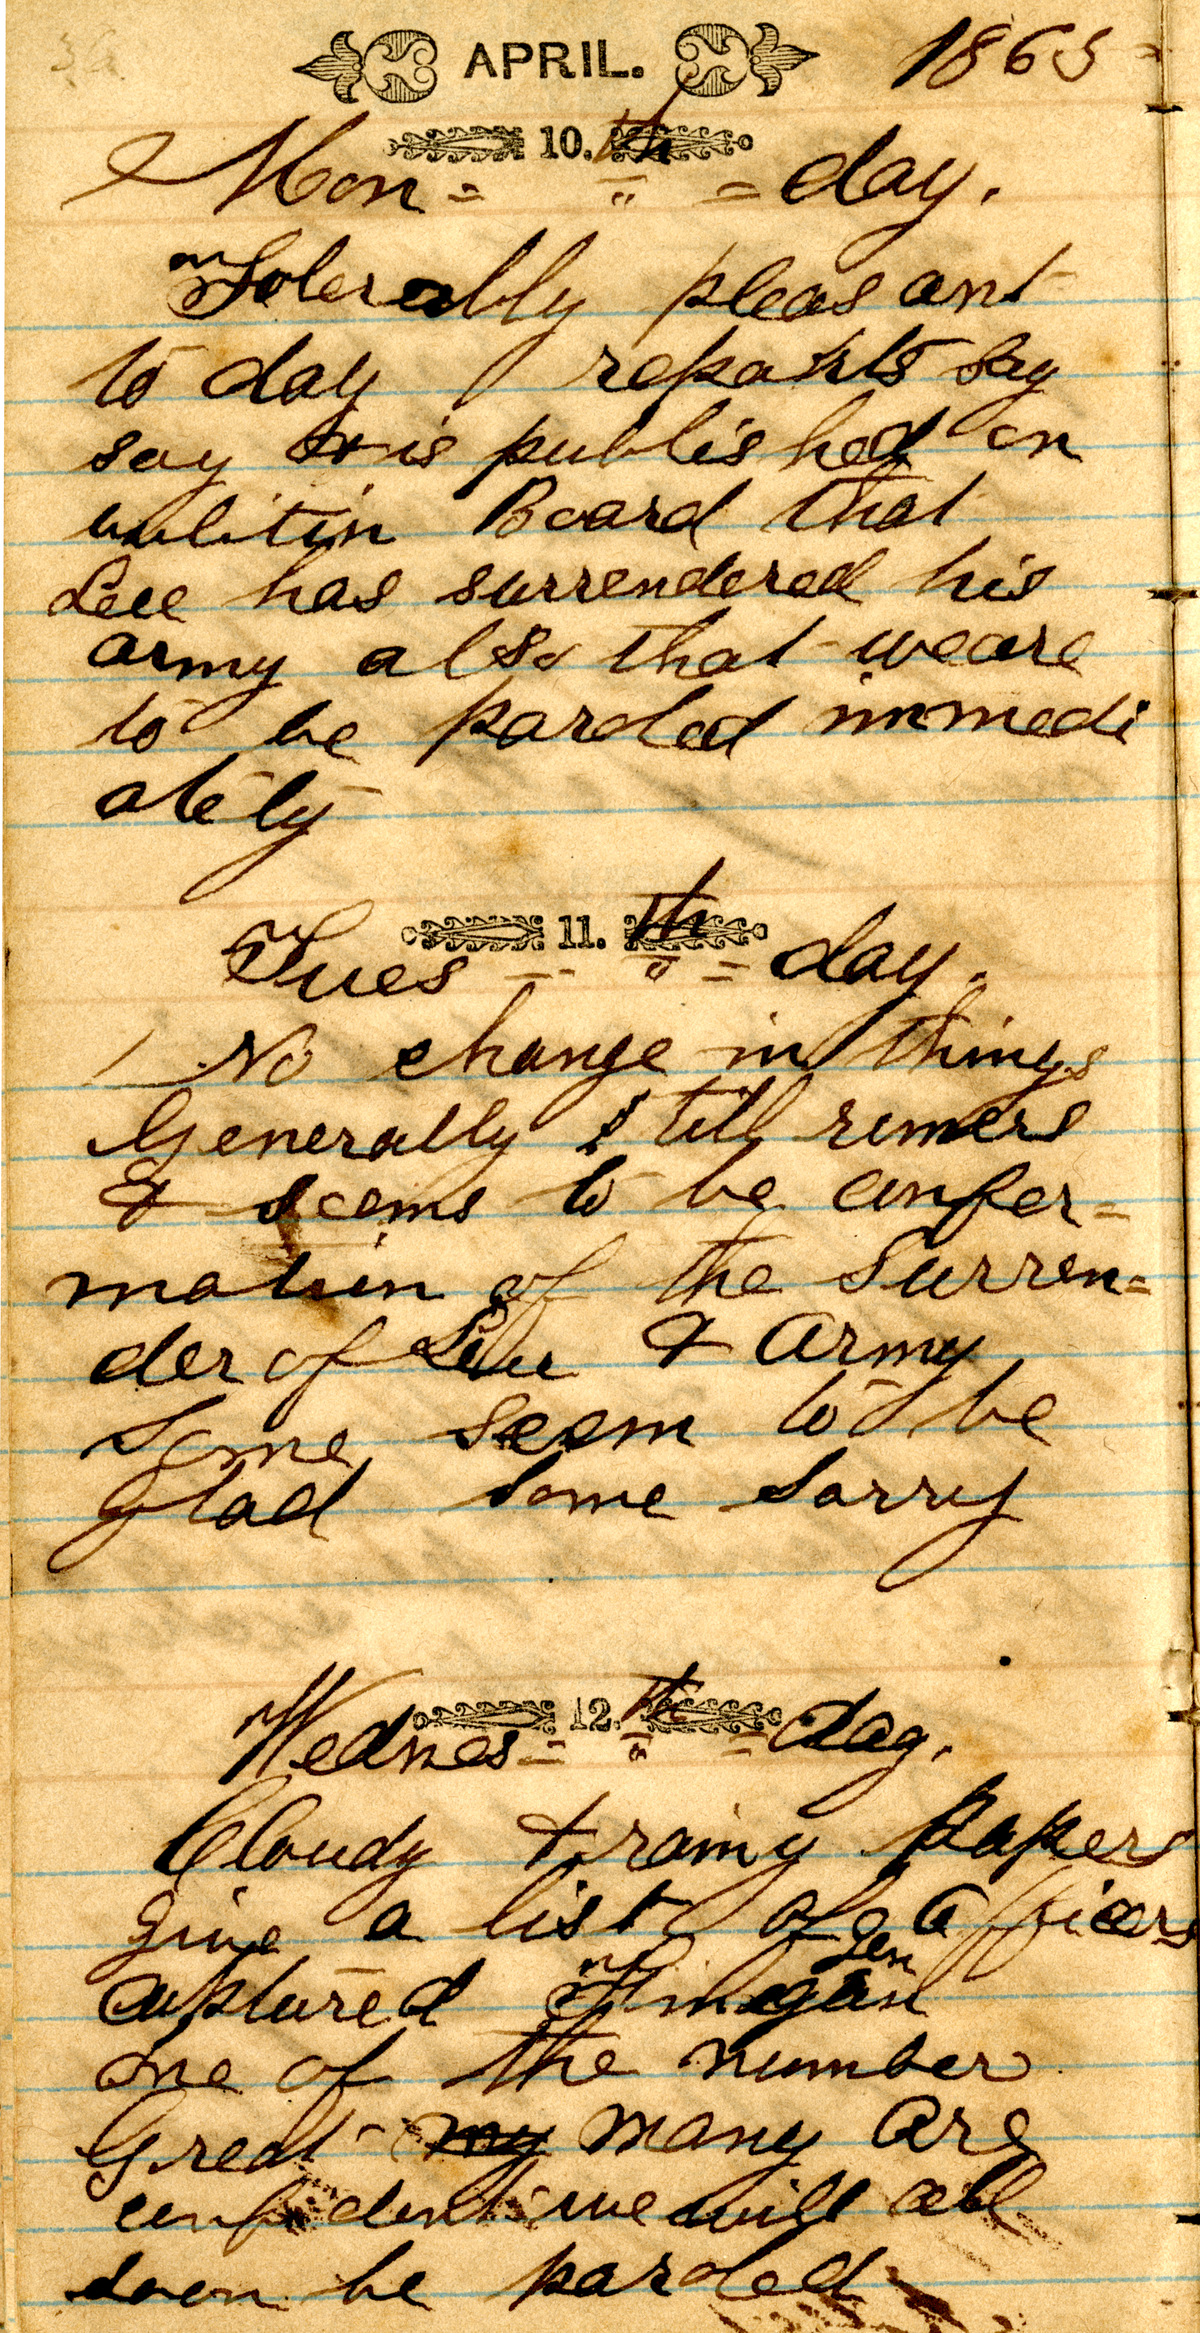 APRIL. 1865
10. th
Mon = " = day.
Tolerably pleasant
to day reports say
say it is published on
bulitin Board that
Lee has surrendered his
army also that we are
to be paroled immedi
ately
11. th
Tues = " = day.
No change in things
Generally still rumers
& seems to be confer=
mation of the Surren=
der of Lee & Army
Some seem to be
Glad some sorry
12. th
Wednes = " = day.
Cloudy & rainy papers
give a list of officers
Gen
captured Finegan
one of the number
Great my many are
confident we will all
soon be paroled